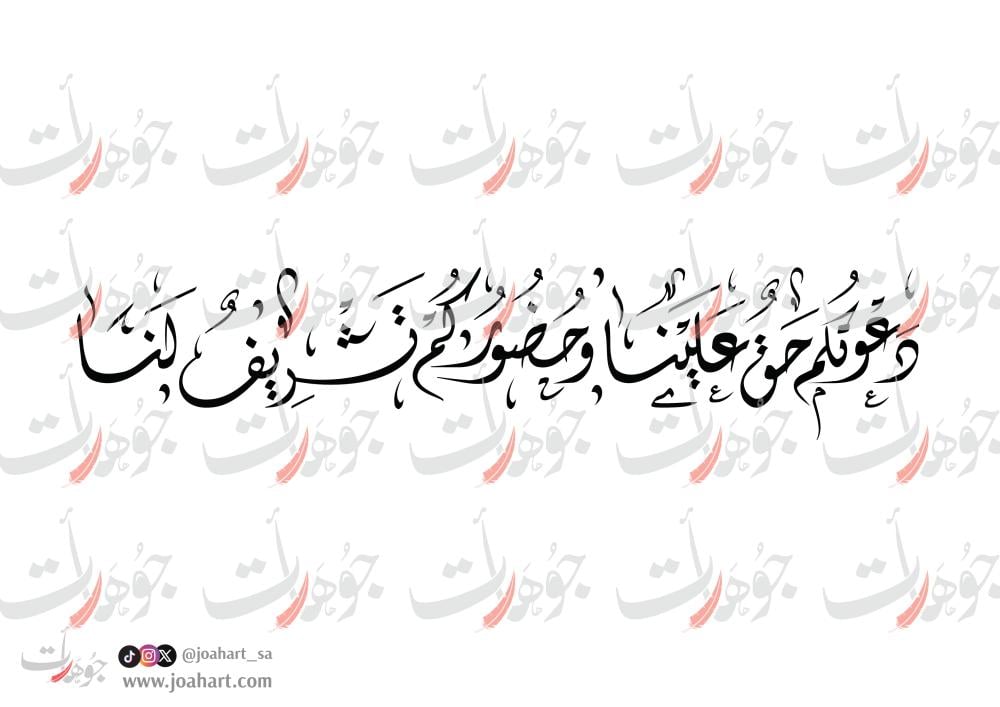 دَعْوَتُكُم حَقٌّ عَلَيْنَا وَحُضُورُكُم تَشْرِيفٌ لَنَا
جوهرات
@joahart_sa
www.joahart.com